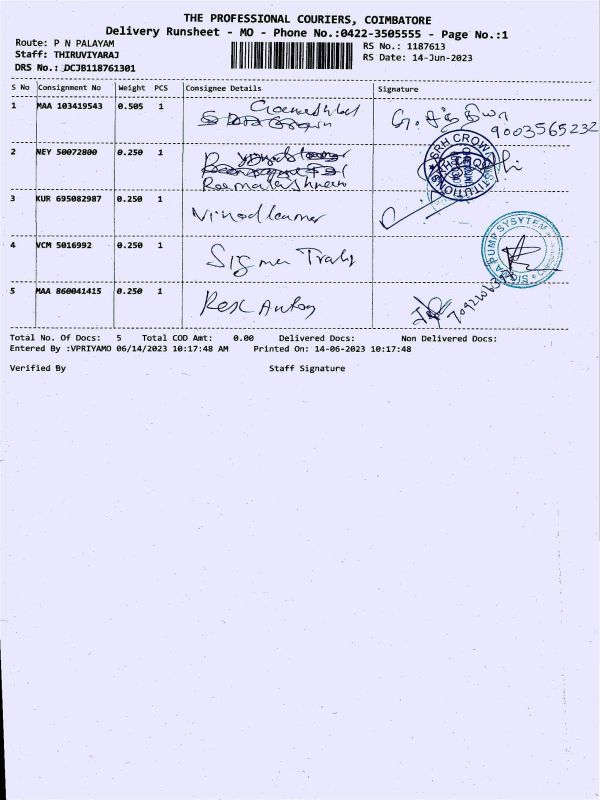 THE PROFESSIONAL COURIERS, COIMBATORE
Delivery Runsheet - MO - Phone No.:0422-3505555 - Page No.:1
Route: P N PALAYAM
Staff: THIRUVIYARAJ
DRS No.: DCJB118761301
RS No.: 1187613
RS Date: 14-Jun-2023
S No Consignment No Weight PCS Consignee Details Signature
1 MAA 103419543 0.505 1
9003565232
2 NEY 50072800 0.250 1
3 KUR 695082987 0.250 1
Vinod kumar
4 VCM 5016992 0.250 1
Sigma
PUMP SYSYTEM
5 MAA 860041415 0.250 1
Rex Antony
Total No. Of Docs: 5 Total COD Amt: 0.00 Delivered Docs: Non Delivered Docs:
Entered By :VPRIYAMO 06/14/2023 10:17:48 AM Printed On: 14-06-2023 10:17:48
Verified By Staff Signature